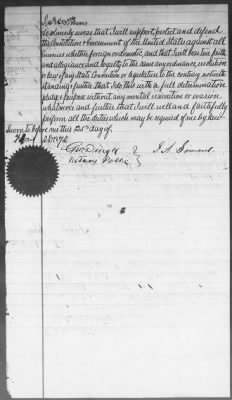 solemnly swear that I will support, protect and defend
the Constitution & Government of the United States against all
enemies whether foreign or domestic, and that I will bear true faith
and allegiance and loyalty to the same any ordinance, resolution
or law of any State Convention or legislature to the contrary notwith-
standing further that I do this with a full determination
pledge & purpose without any mental reservation or evasion
whatsoever and further that I will well and faithfully
perform all the duties which may be required of me by law
Sworn to before me this 25th day of
Notary Public